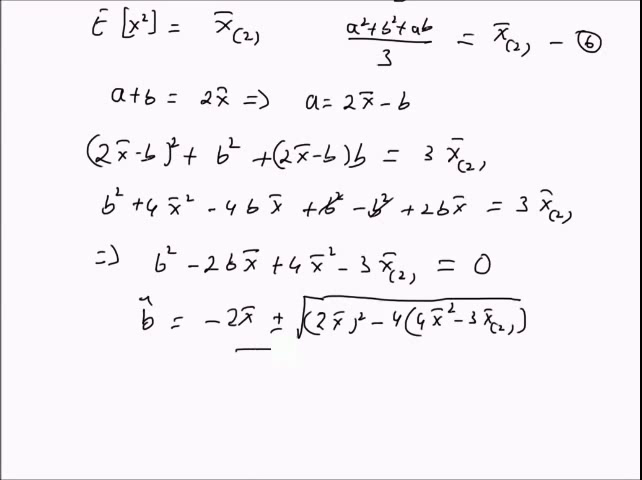 E [x²] = x̄₍₂₎    (a²+b²+ab)/3 = x̄₍₂₎ - ⑥
a+b = 2x̄ => a = 2x̄ - b
(2x̄-b)² + b² + (2x̄-b)b = 3 x̄₍₂₎
b² + 4x̄² - 4bx̄ + b² - b² + 2bx̄ = 3 x̄₍₂₎
=> b² - 2bx̄ + 4x̄² - 3x̄₍₂₎ = 0
b̂ = -2x̄ ± √((2x̄)² - 4(4x̄² - 3x̄₍₂₎)